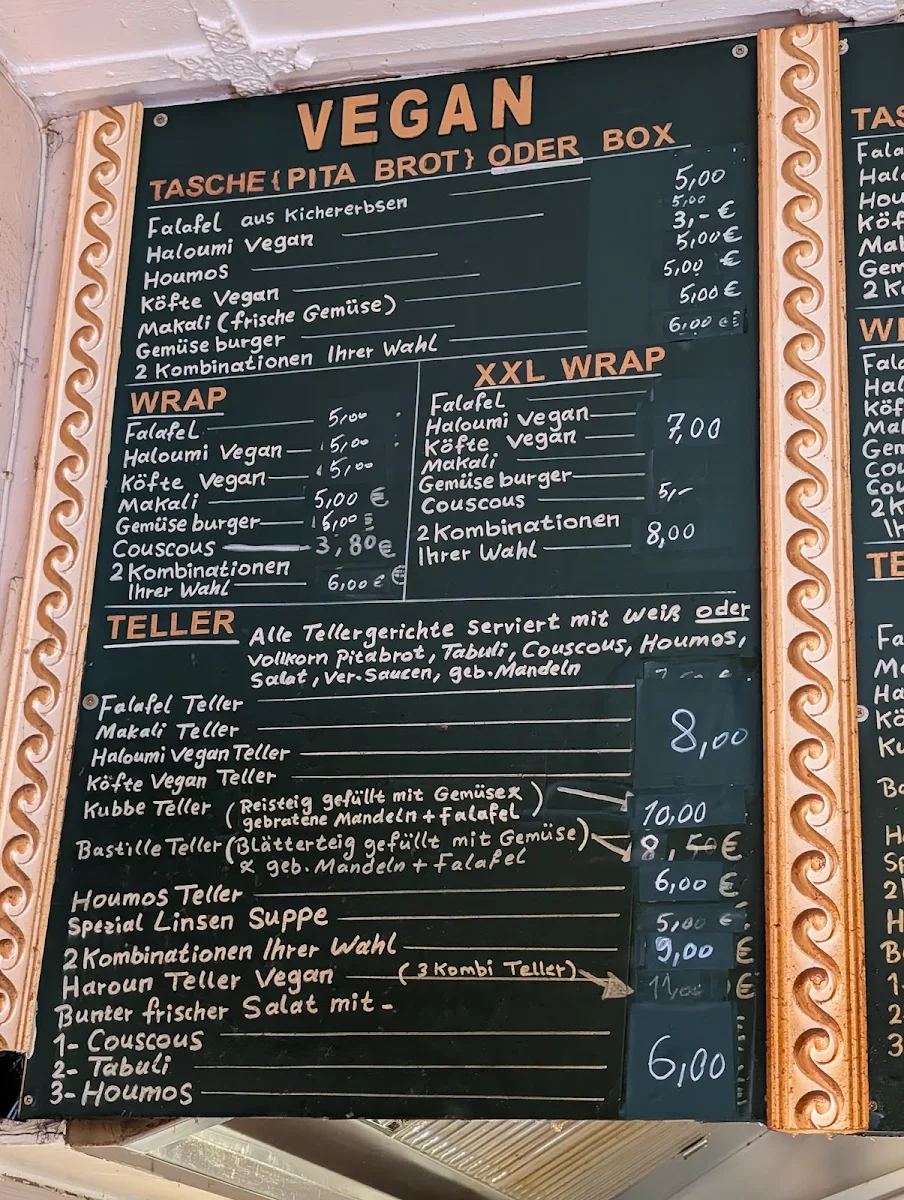 VEGAN
TASCHE {PITA BROT} ODER BOX
Falafel aus Kichererbsen 5,00
Haloumi Vegan 5,00
Houmos 3,- €
Köfte Vegan 5,00€
Makali (frische Gemüse) 5,00 €
Gemüse burger 5,00€
2 Kombinationen Ihrer Wahl 6,00 €
WRAP
Falafel 5,00
Haloumi Vegan 5,00
Köfte Vegan 5,00
Makali 5,00 €
Gemüse burger 5,00
Couscous 3,80€
2 Kombinationen
Ihrer Wahl 6,00€
XXL WRAP
Falafel
Haloumi Vegan
Köfte Vegan 7,00
Makali
Gemüse burger
Couscous 5,-
2 Kombinationen
Ihrer Wahl 8,00
TELLER
Alle Tellergerichte Serviert mit weiß oder
Vollkorn Pitabrot, Tabuli, Couscous, Houmos,
Salat, Ver. Saucen, geb. Mandeln
Falafel Teller
Makali Teller 8,00
Haloumi Vegan Teller
Köfte Vegan Teller
Kubbe Teller (Reisteig gefüllt mit Gemüse &
gebratene Mandeln + Falafel) 10,00
Bastille Teller (Blätterteig gefüllt mit Gemüse) 8,50€
& geb. Mandeln + Falafel
Houmos Teller 6,00 €
Spezial Linsen Suppe 5,00 €
2 Kombinationen Ihrer Wahl 9,00 €
Haroun Teller Vegan (3 Kombi Teller) 11,00 €
Bunter frischer Salat mit -
1- Couscous
2- Tabuli 6,00
3- Houmos